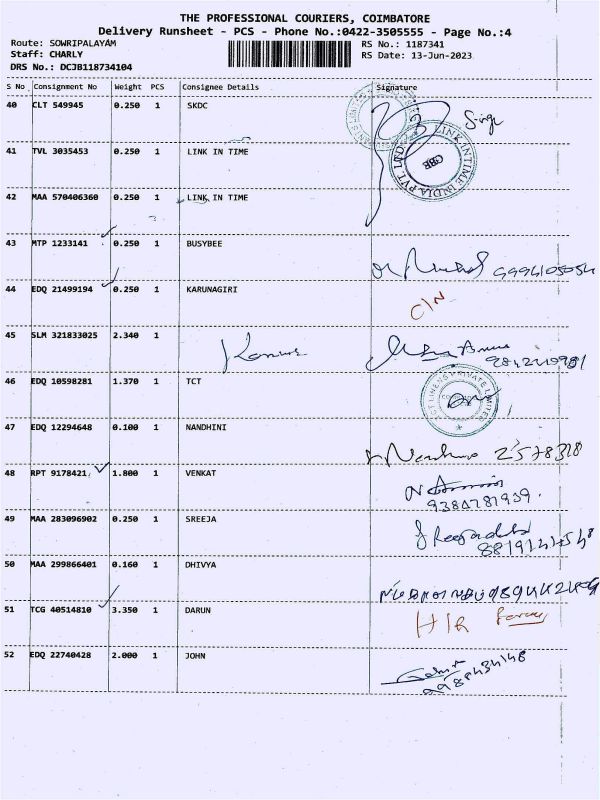 THE PROFESSIONAL COURIERS, COIMBATORE
Delivery Runsheet - PCS - Phone No.:0422-3505555 - Page No.:4
Route: SOWRIPALAYAM RS No.: 1187341
Staff: CHARLY RS Date: 13-Jun-2023
DRS No.: DCJB118734104
S No Consignment No Weight PCS Consignee Details Signature
40 CLT 549945 0.250 1 SKDC
41 TVL 3035453 0.250 1 LINK IN TIME
LINK INTIME INDIA PVT. LTD
CBE
42 MAA 570406360 0.250 1 LINK IN TIME
43 MTP 1233141 0.250 1 BUSYBEE
44 EDQ 21499194 0.250 1 KARUNAGIRI
45 SLM 321833025 2.340 1
46 EDQ 10598281 1.370 1 TCT
LINENS PRIVATE LIMITED
47 EDQ 12294648 0.100 1 NANDHINI
48 RPT 9178421 1.800 1 VENKAT
49 MAA 283096902 0.250 1 SREEJA
50 MAA 299866401 0.160 1 DHIVYA
51 TCG 40514810 3.350 1 DARUN
52 EDQ 22740428 2.000 1 JOHN